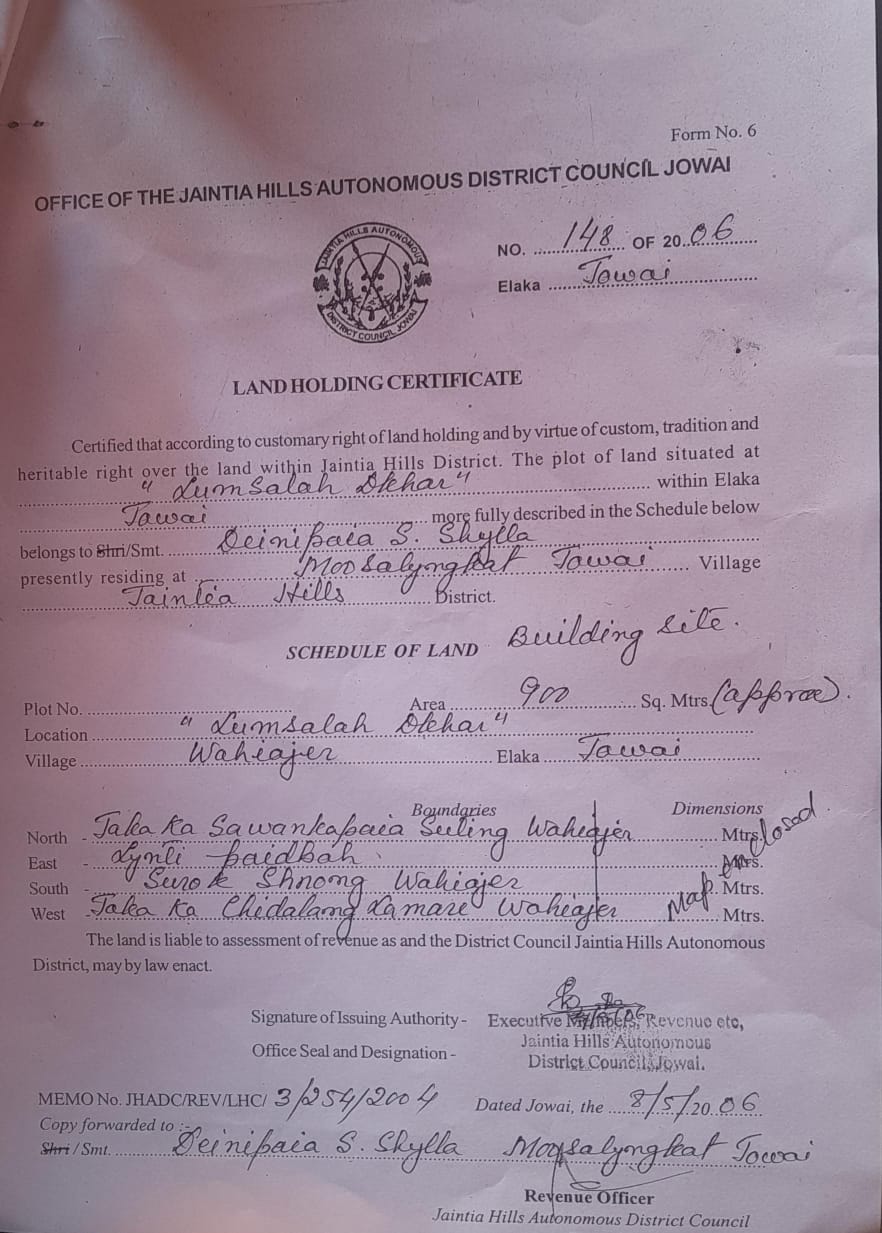 Form No. 6
OFFICE OF THE JAINTIA HILLS AUTONOMOUS DISTRICT COUNCIL JOWAI
JAINTIA HILLS AUTONOMOUS
DISTRICT COUNCIL JOWAI
NO. 148 OF 2006
Elaka Jowai
LAND HOLDING CERTIFICATE
Certified that according to customary right of land holding and by virtue of custom, tradition and
heritable right over the land within Jaintia Hills District. The plot of land situated at
"Lumsalah Dkhar" within Elaka
Jowai more fully described in the Schedule below
belongs to Shri/Smt. Deinipaia S. Shylla
presently residing at Moosalyngkat Jowai Village
Jaintia Hills District.
SCHEDULE OF LAND Building site.
Plot No. Area 900 Sq. Mtrs. (approx).
Location "Lumsalah Dkhar"
Village Wahiajer Elaka Jowai
Boundaries Dimensions
North - Jaka Ka Sawankapaia Suting Wahiajer Mtrs. closed.
East - Lynti paidbah. Mtrs.
South - Surok Shnong Wahiajer Mtrs.
West - Jaka Ka Chidalang Lamare Wahiajer Map Mtrs.
The land is liable to assessment of revenue as and the District Council Jaintia Hills Autonomous
District, may by law enact.
Signature of Issuing Authority - Executive Members, Revenue etc,
Jaintia Hills Autonomous
Office Seal and Designation - District Council, Jowai.
MEMO No. JHADC/REV/LHC/ 3/254/2004 Dated Jowai, the 8/5/2006
Copy forwarded to :-
Shri / Smt. Deinipaia S. Shylla Moosalyngkat Jowai
Revenue Officer
Jaintia Hills Autonomous District Council